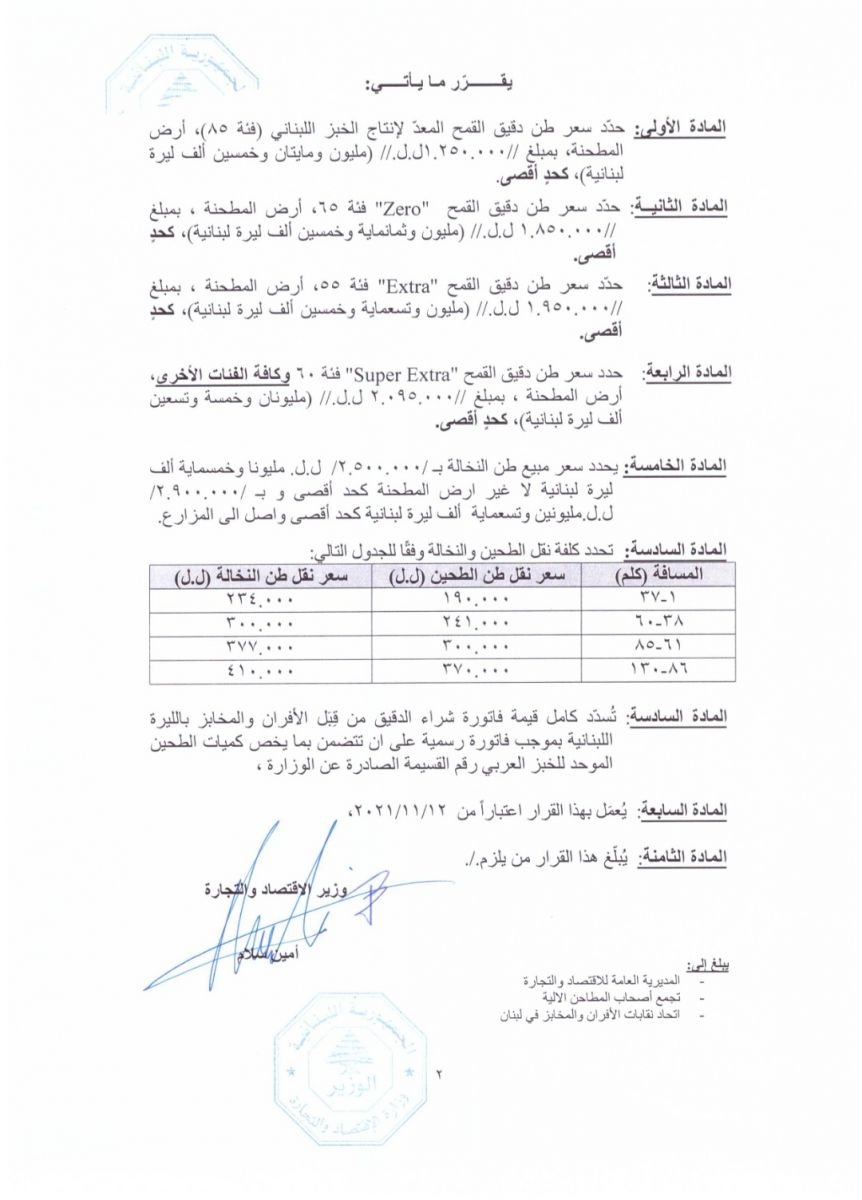 الجمهورية اللبنانية
يقـــــرّر مـا يـأتــــي:
المادة الأولى: حدّد سعر طن دقيق القمح المعدّ لإنتاج الخبز اللبناني (فئة ٨٥)، أرض
المطحنة، بمبلغ //١.٢٥٠.٠٠٠ل.ل.// (مليون ومايتان وخمسين ألف ليرة
لبنانية)، كحدٍ أقصى.
المادة الثانيــة: حدّد سعر طن دقيق القمح "Zero" فئة ٦٥، أرض المطحنة ، بمبلغ
//١.٨٥٠.٠٠٠ ل.ل.// (مليون وثمانماية وخمسين ألف ليرة لبنانية)، كحدٍ
أقصى.
المادة الثالثة: حدّد سعر طن دقيق القمح "Extra" فئة ٥٥، أرض المطحنة ، بمبلغ
//١.٩٥٠.٠٠٠ ل.ل.// (مليون وتسعماية وخمسين ألف ليرة لبنانية)، كحدٍ
أقصى.
المادة الرابعة: حدد سعر طن دقيق القمح "Super Extra" فئة ٦٠ وكافة الفئات الأخرى،
أرض المطحنة ، بمبلغ //٢.٠٩٥.٠٠٠ ل.ل.// (مليونان وخمسة وتسعين
ألف ليرة لبنانية)، كحدٍ أقصى.
المادة الخامسة: يحدد سعر مبيع طن النخالة بـ /٢.٥٠٠.٠٠٠/ ل.ل. مليونا وخمسماية ألف
ليرة لبنانية لا غير ارض المطحنة كحد أقصى و بـ /٢.٩٠٠.٠٠٠/
ل.ل.مليونين وتسعماية ألف ليرة لبنانية كحد أقصى واصل الى المزارع.
المادة السادسة: تحدد كلفة نقل الطحين والنخالة وفقًا للجدول التالي:
المسافة (كلم) سعر نقل طن الطحين (ل.ل) سعر نقل طن النخالة (ل.ل)
١-٣٧ ١٩٠.٠٠٠ ٢٣٤.٠٠٠
٣٨-٦٠ ٢٤١.٠٠٠ ٣٠٠.٠٠٠
٦١-٨٥ ٣٠٠.٠٠٠ ٣٧٧.٠٠٠
٨٦-١٣٠ ٣٧٠.٠٠٠ ٤١٠.٠٠٠
المادة السادسة: تُسدّد كامل قيمة فاتورة شراء الدقيق من قِبَل الأفران والمخابز بالليرة
اللبنانية بموجب فاتورة رسمية على ان تتضمن بما يخص كميات الطحين
الموحد للخبز العربي رقم القسيمة الصادرة عن الوزارة ،
المادة السابعة: يُعمَل بهذا القرار اعتباراً من ٢٠٢١/١١/١٢،
المادة الثامنة: يُبلّغ هذا القرار من يلزم./.
وزير الاقتصاد والتجارة
أمين سلام
يبلغ إلى:
- المديرية العامة للاقتصاد والتجارة
- تجمع أصحاب المطاحن الالية
- اتحاد نقابات الأفران والمخابز في لبنان
الجمهورية اللبنانية
الوزير
وزارة الإقتصاد والتجارة
٢